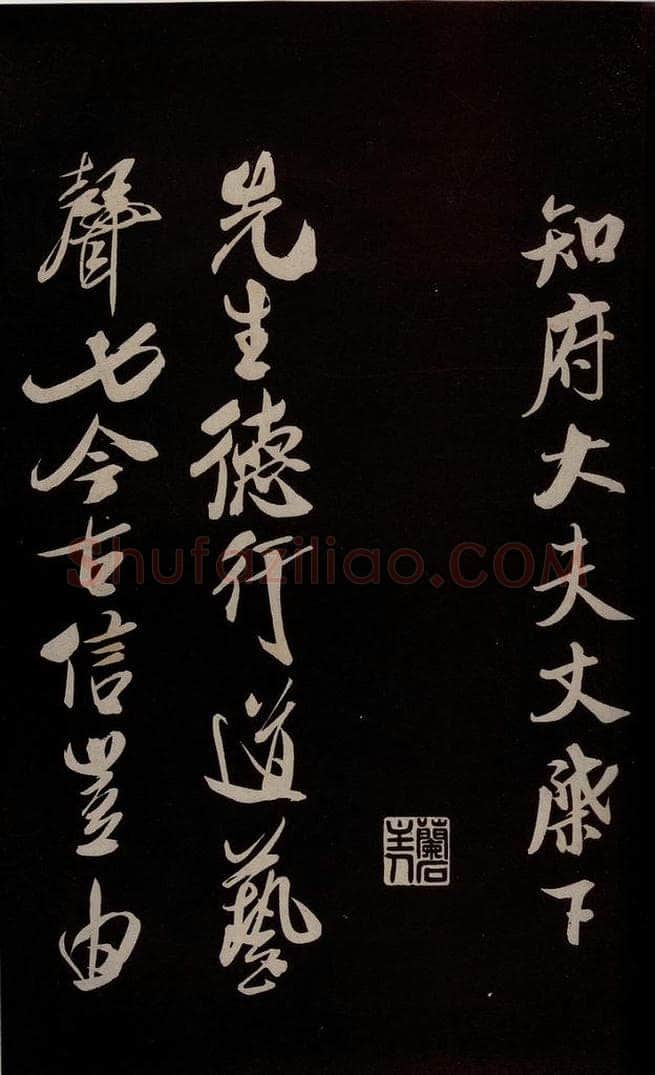 知府大夫丈棨下
先生德行道藝
聲今古信豈由
蘭石主人
Shufaziliao.COM